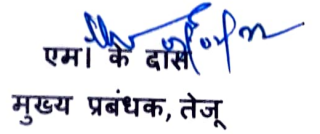 एम। के दास
मुख्य प्रबंधक, तेजू